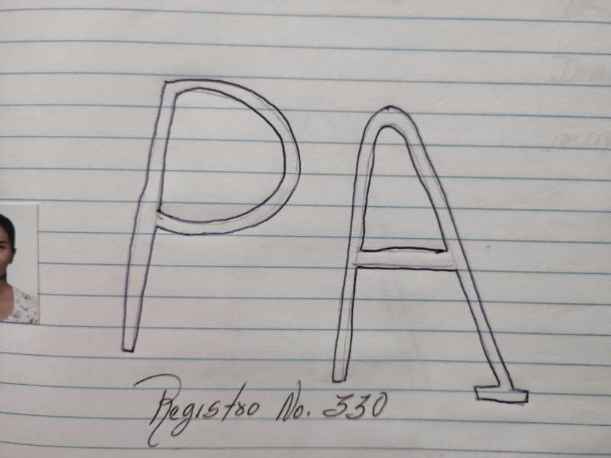 PA
Registro No. 330